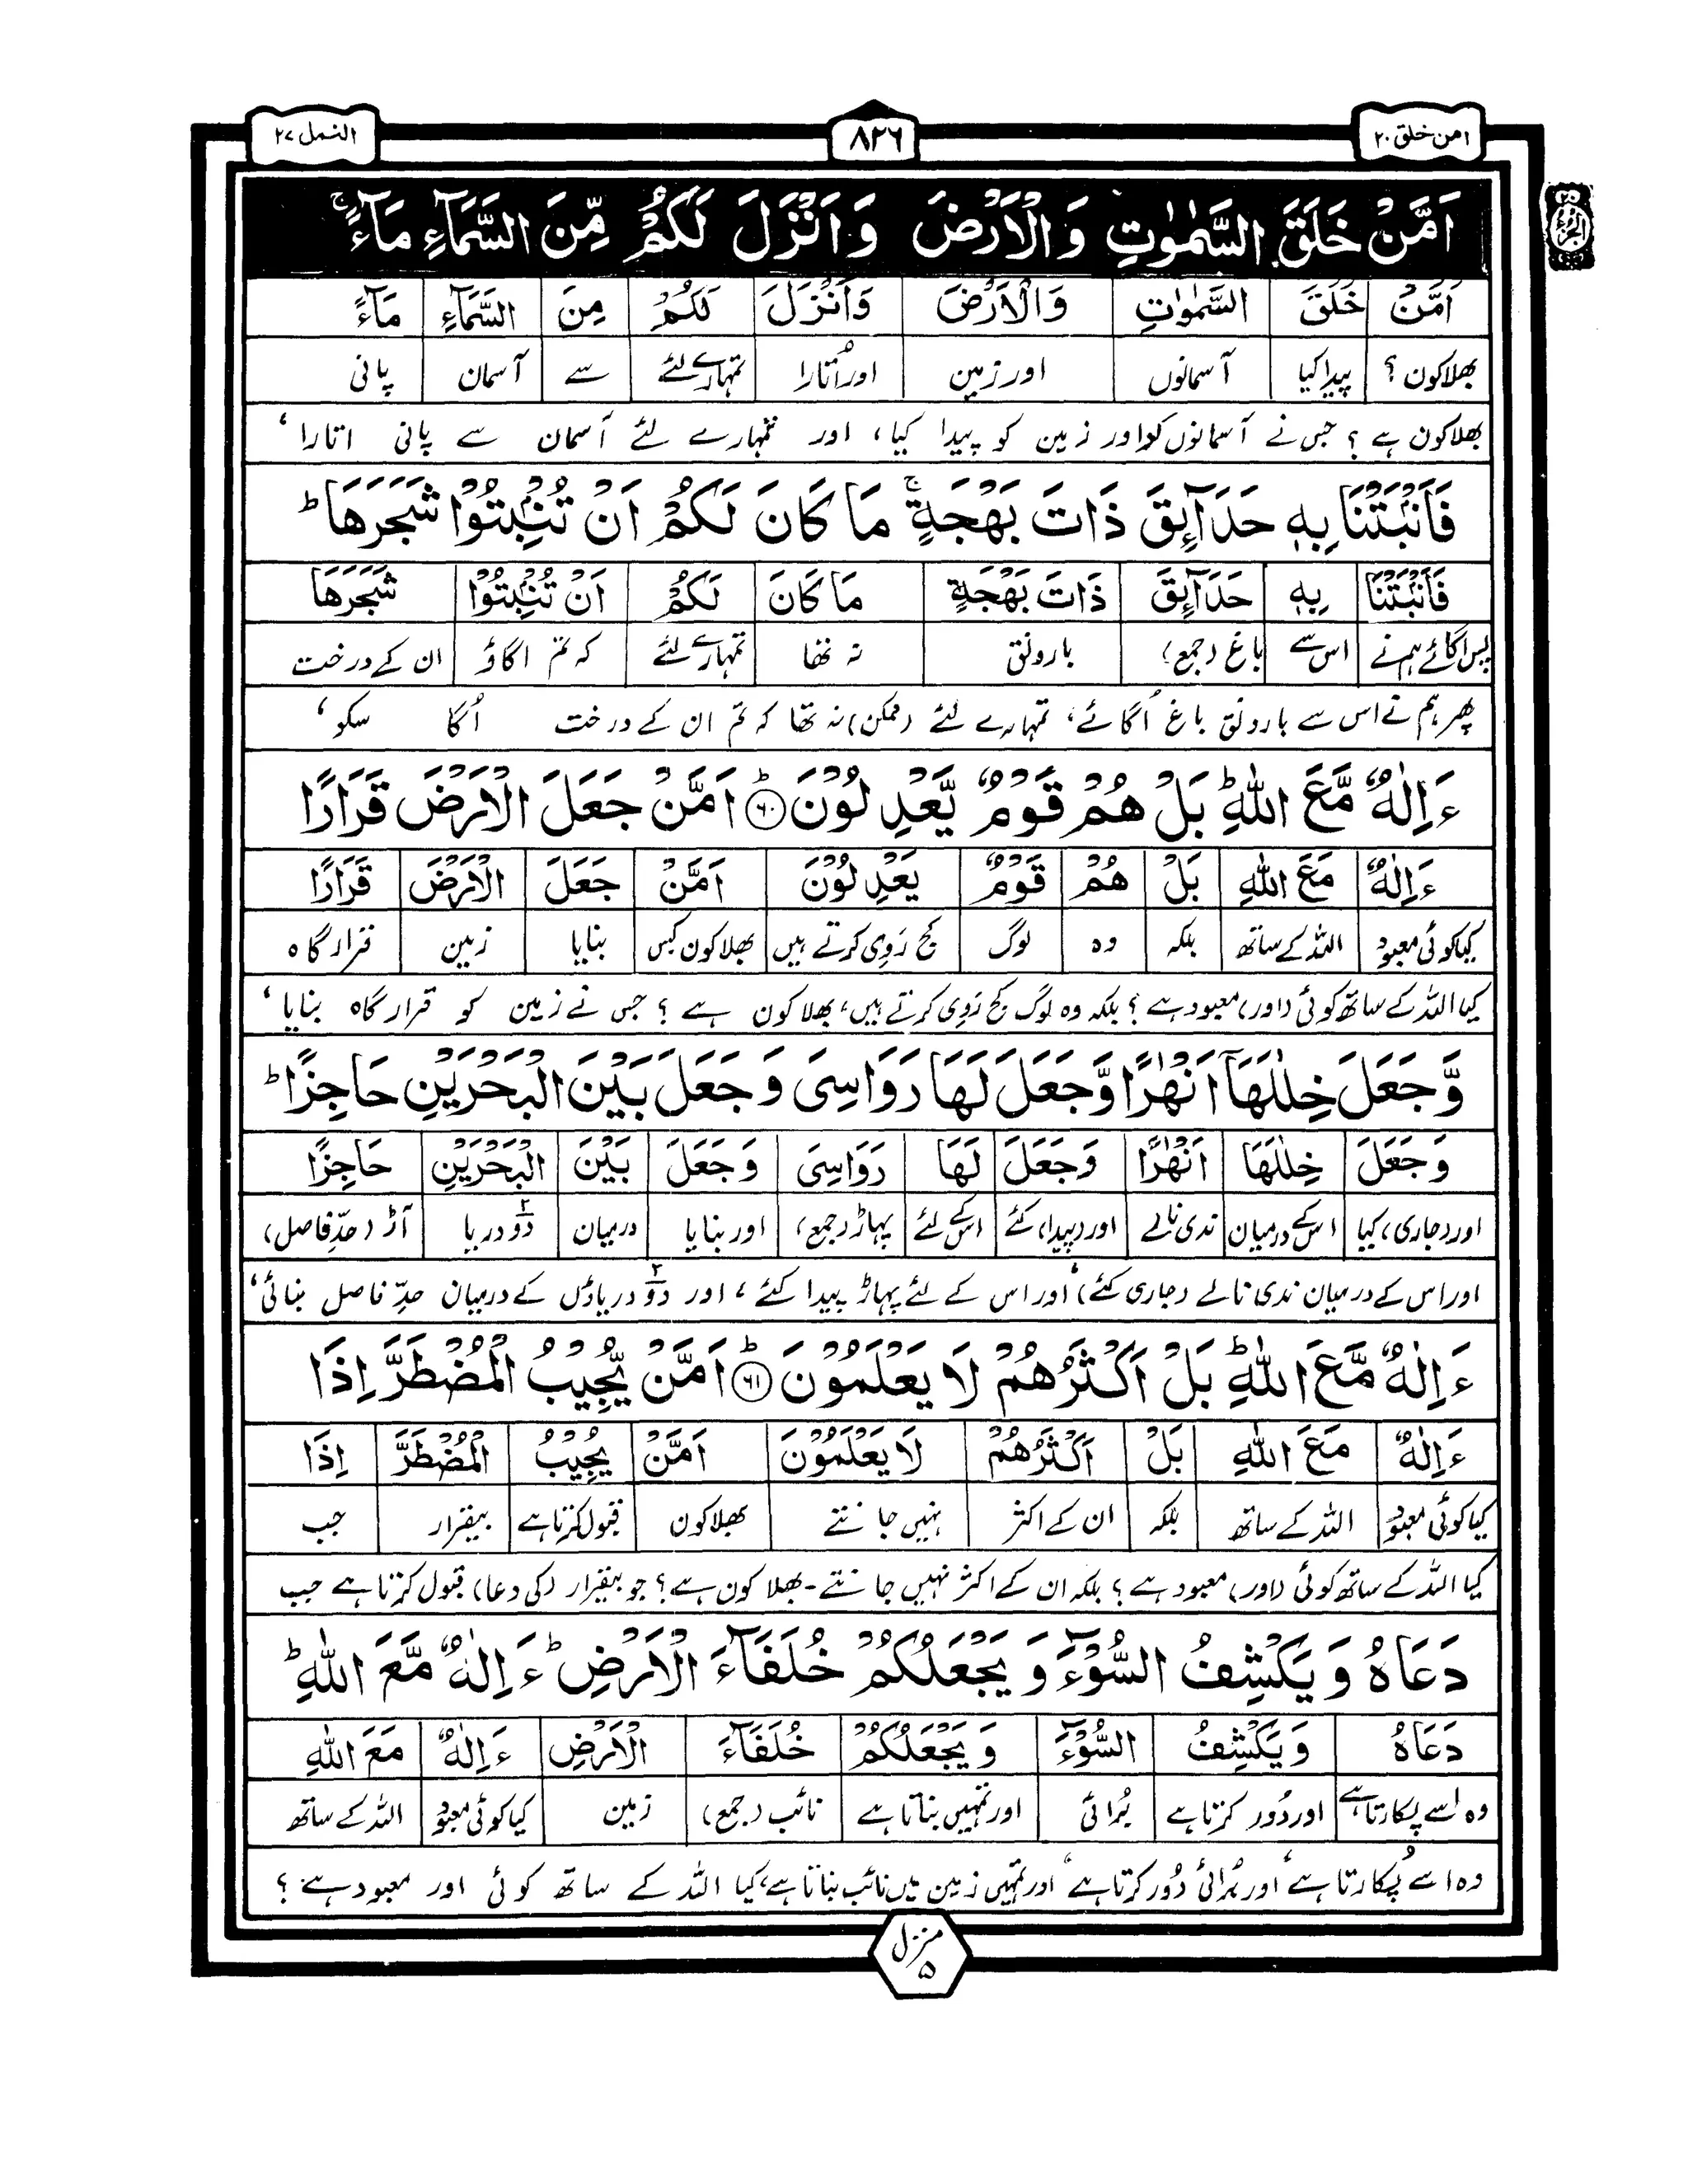 امن خلق ۲۰
۸۲۶
النمل ۲۷
اَمَّنْ خَلَقَ السَّمٰوٰتِ وَ الْاَرْضَ وَ اَنْزَلَ لَكُمْ مِّنَ السَّمَآءِ مَآءً ۚ
اَمَّنْ خَلَقَ السَّمٰوٰتِ وَالْاَرْضَ وَاَنْزَلَ لَكُمْ مِنَ السَّمَآءِ مَآءً
بھلا کون ؟ پیدا کیا آسمانوں اور زمین اور اُتارا تمہارے لئے سے آسمان پانی
بھلا کون ہے ؟ جس نے آسمانوں کو اور زمین کو پیدا کیا، اور تمہارے لئے آسمان سے پانی اتارا ،
فَاَنْۢبَتْنَا بِهٖ حَدَآئِقَ ذَاتَ بَهْجَةٍ ۚ مَا كَانَ لَكُمْ اَنْ تُنْۢبِتُوْا شَجَرَهَا ؕ
فَاَنْۢبَتْنَا بِهٖ حَدَآئِقَ ذَاتَ بَهْجَةٍ مَا كَانَ لَكُمْ اَنْ تُنْۢبِتُوْا شَجَرَهَا
پس اگائے ہم نے اس سے باغ (جمع) بارونق نہ تھا تمہارے لئے کہ تم اگاؤ ان کے درخت
پھر ہم نے اس سے بارونق باغ اُگائے، تمہارے لئے (ممکن) نہ تھا کہ تم ان کے درخت اُگا سکو ،
ءَاِلٰهٌ مَّعَ اللّٰهِ ؕ بَلْ هُمْ قَوْمٌ يَّعْدِلُوْنَ ؕ ﴿۶۰﴾ اَمَّنْ جَعَلَ الْاَرْضَ قَرَارًا
ءَاِلٰهٌ مَعَ اللّٰهِ بَلْ هُمْ قَوْمٌ يَعْدِلُوْنَ اَمَّنْ جَعَلَ الْاَرْضَ قَرَارًا
کیا کوئی معبود اللہ کے ساتھ بلکہ وہ لوگ کج رَوی کرتے ہیں بھلا کون کس بنایا زمین قرار گاہ
کیا اللہ کے ساتھ کوئی (اور) معبود ہے ؟ بلکہ وہ لوگ کج رَوی کرتے ہیں، بھلا کون ہے ؟ جس نے زمین کو قرار گاہ بنایا ،
وَّ جَعَلَ خِلٰلَهَاۤ اَنْهٰرًا وَّ جَعَلَ لَهَا رَوَاسِىَ وَ جَعَلَ بَيْنَ الْبَحْرَيْنِ حَاجِزًا ؕ
وَجَعَلَ خِلٰلَهَا اَنْهٰرًا وَجَعَلَ لَهَا رَوَاسِىَ وَجَعَلَ بَيْنَ الْبَحْرَيْنِ حَاجِزًا
اور (جاری) کیا اس کے درمیان ندی نالے اور (پیدا) کئے اس کے لئے پہاڑ (جمع) اور بنایا درمیان دو۲ دریا آڑ (حدِّ فاصل)
اور اس کے درمیان ندی نالے (جاری کئے) اور اس کے لئے پہاڑ پیدا کئے ، اور دو۲ دریاؤں کے درمیان حدِّ فاصل بنائی ،
ءَاِلٰهٌ مَّعَ اللّٰهِ ؕ بَلْ اَكْثَرُهُمْ لَا يَعْلَمُوْنَ ؕ ﴿۶۱﴾ اَمَّنْ يُّجِيْبُ الْمُضْطَرَّ اِذَا
ءَاِلٰهٌ مَعَ اللّٰهِ بَلْ اَكْثَرُهُمْ لَا يَعْلَمُوْنَ اَمَّنْ يُجِيْبُ الْمُضْطَرَّ اِذَا
کیا کوئی معبود اللہ کے ساتھ بلکہ ان کے اکثر نہیں جانتے بھلا کون قبول کرتا ہے بیقرار جب
کیا اللہ کے ساتھ کوئی (اور) معبود ہے ؟ بلکہ ان کے اکثر نہیں جانتے - بھلا کون ہے ؟ جو بیقرار (کی دعا) قبول کرتا ہے جب
دَعَاهُ وَ يَكْشِفُ السُّوْٓءَ وَ يَجْعَلُكُمْ خُلَفَآءَ الْاَرْضِ ؕ ءَاِلٰهٌ مَّعَ اللّٰهِ ؕ
دَعَاهُ وَيَكْشِفُ السُّوْٓءَ وَيَجْعَلُكُمْ خُلَفَآءَ الْاَرْضِ ءَاِلٰهٌ مَعَ اللّٰهِ
وہ اسے پکارتا ہے اور دُور کرتا ہے بُرائی اور تمہیں بناتا ہے نائب (جمع) زمین کیا کوئی معبود اللہ کے ساتھ
وہ اسے پُکارتا ہے، اور بُرائی دُور کرتا ہے، اور تمہیں زمین میں نائب بناتا ہے، کیا اللہ کے ساتھ کوئی اور معبود ہے ؟
منزل ۵